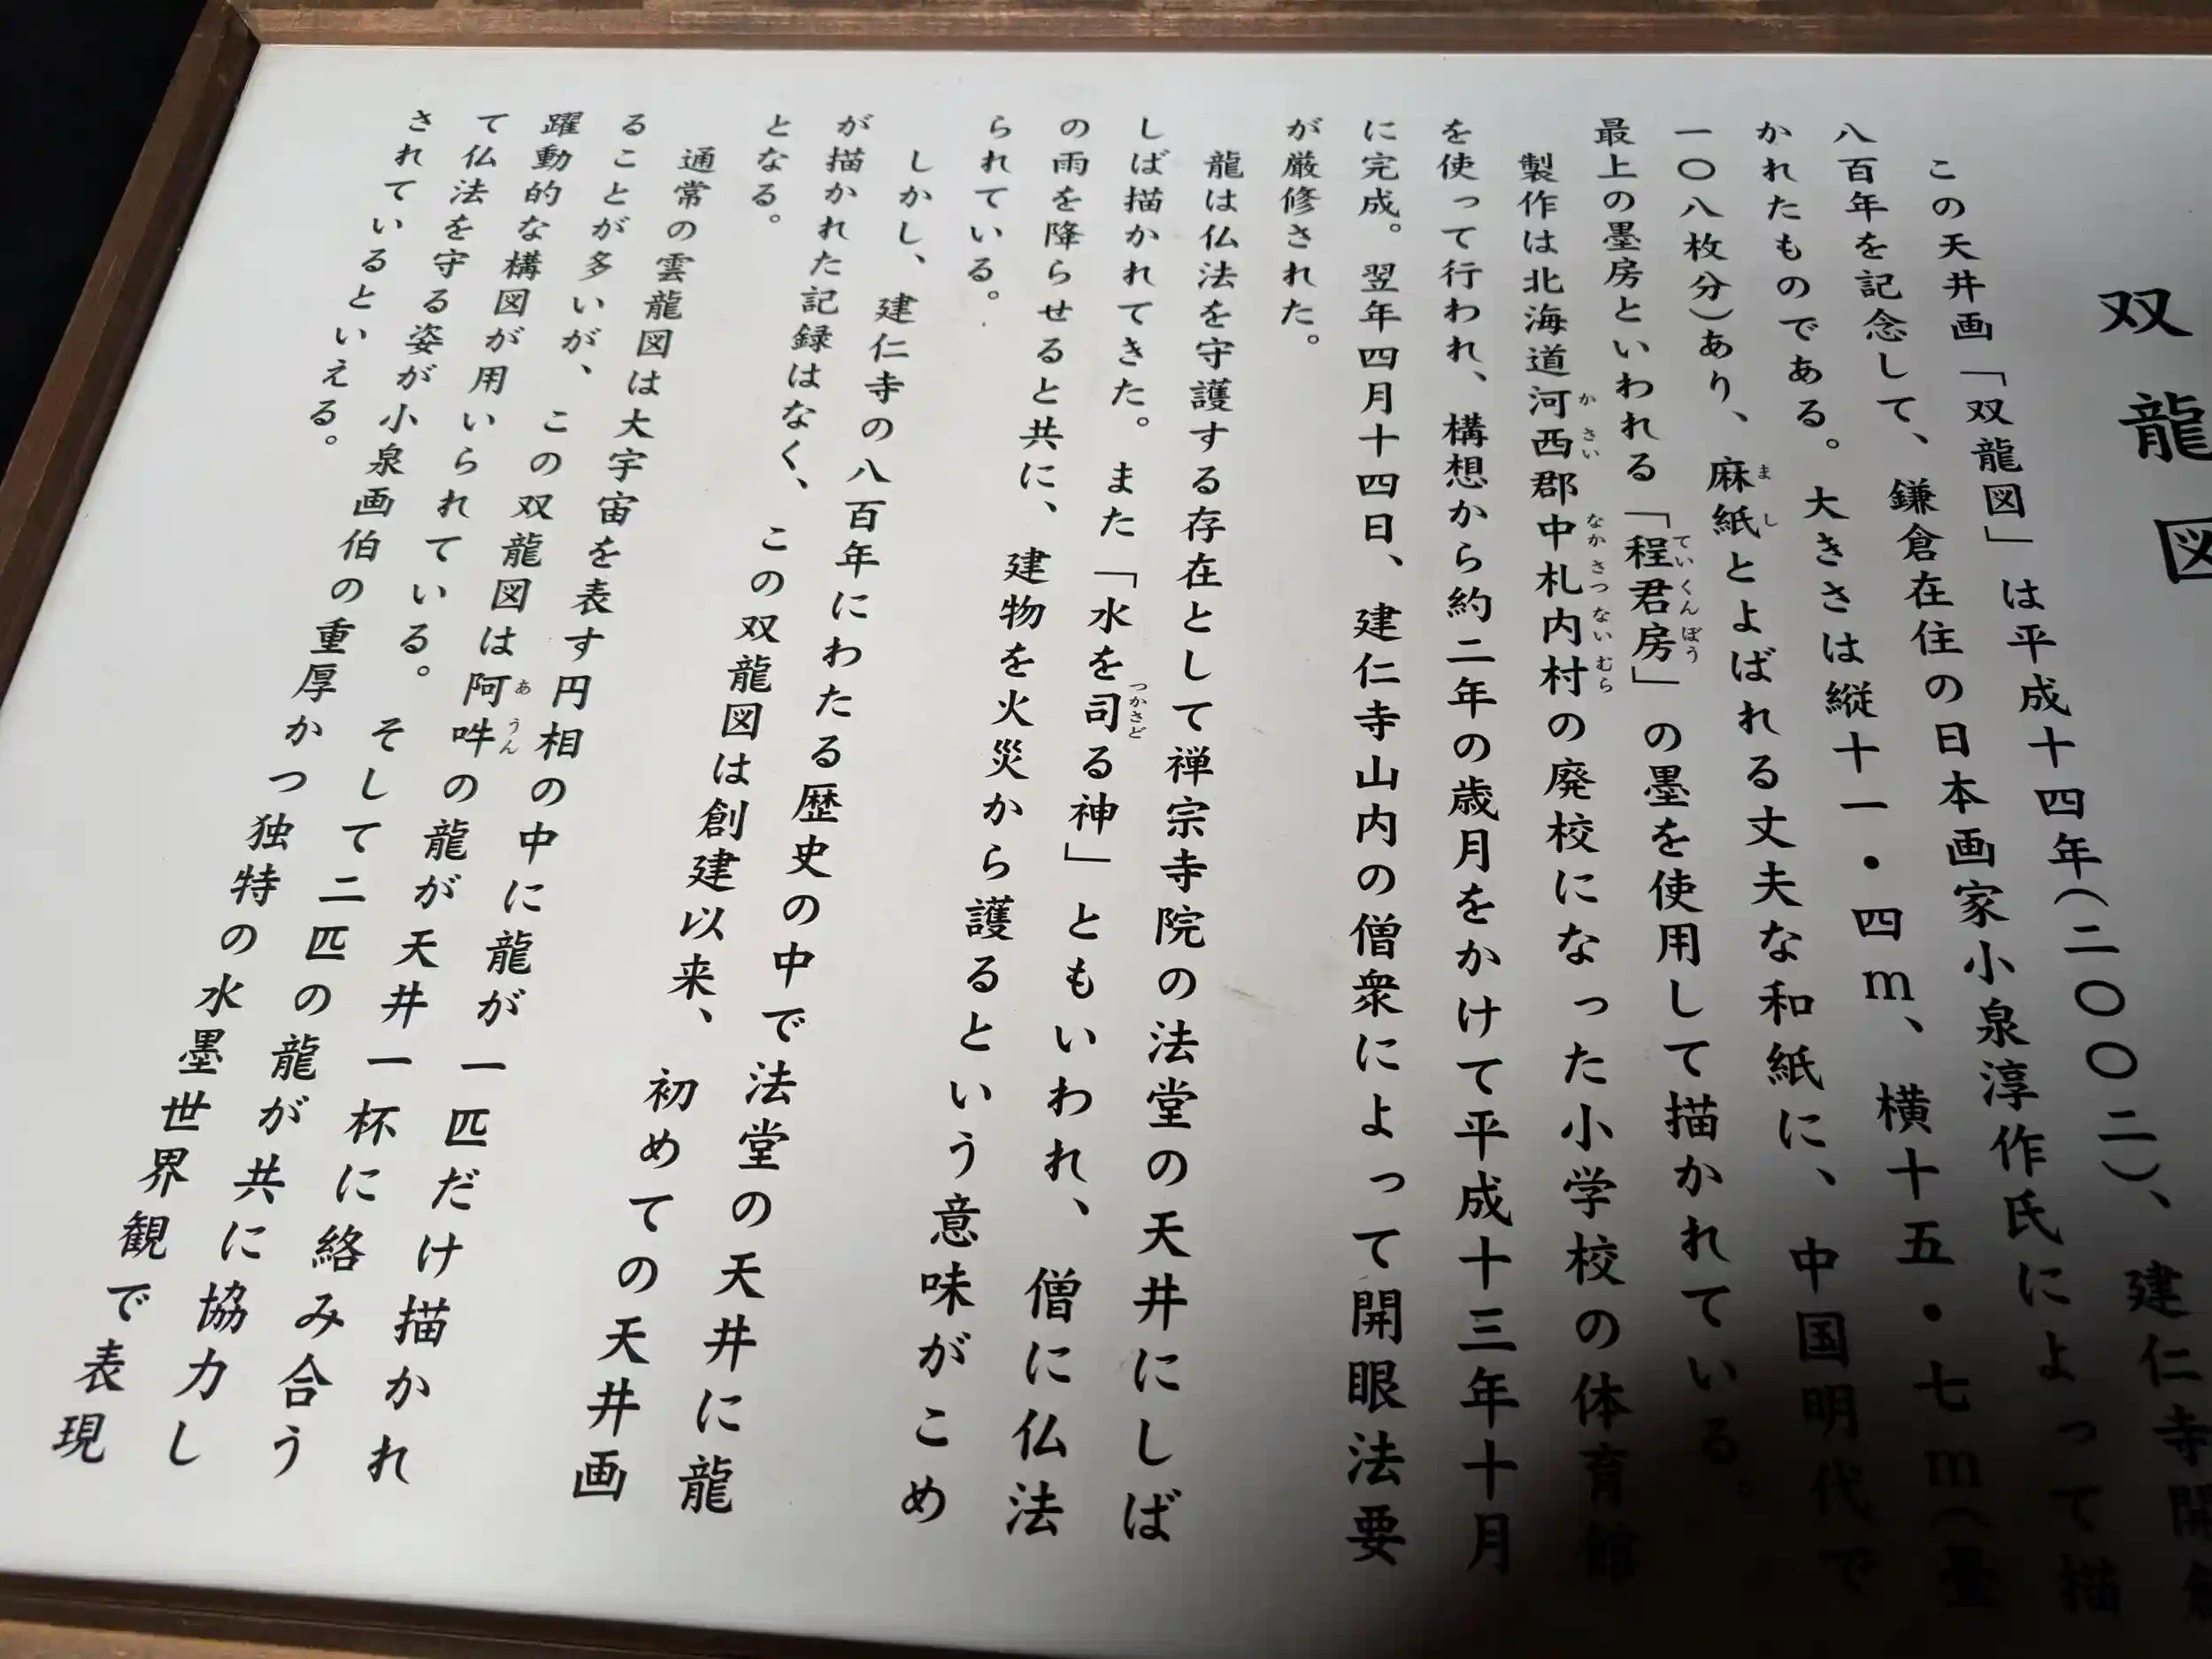 双龍図
この天井画「双龍図」は平成十四年(二〇〇二)、建仁寺開創
八百年を記念して、鎌倉在住の日本画家小泉淳作氏によって描
かれたものである。大きさは縦十一・四m、横十五・七m(畳
一〇八枚分)あり、麻紙とよばれる丈夫な和紙に、中国明代で
最上の墨房といわれる「程君房」の墨を使用して描かれている。
製作は北海道河西郡中札内村の廃校になった小学校の体育館
を使って行われ、構想から約二年の歳月をかけて平成十三年十月
に完成。翌年四月十四日、建仁寺山内の僧衆によって開眼法要
が厳修された。
龍は仏法を守護する存在として禅宗寺院の法堂の天井にしば
しば描かれてきた。また「水を司る神」ともいわれ、僧に仏法
の雨を降らせると共に、建物を火災から護るという意味がこめ
られている。
しかし、建仁寺の八百年にわたる歴史の中で法堂の天井に龍
が描かれた記録はなく、この双龍図は創建以来、初めての天井画
となる。
通常の雲龍図は大宇宙を表す円相の中に龍が一匹だけ描かれ
ることが多いが、この双龍図は阿吽の龍が天井一杯に絡み合う
躍動的な構図が用いられている。そして二匹の龍が共に協力し
て仏法を守る姿が小泉画伯の重厚かつ独特の水墨世界観で表現
されているといえる。